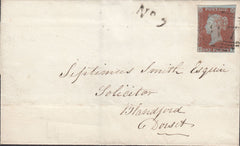 No 9
Septimus Smith Esquire
Solicitor
Blandford
Dorset